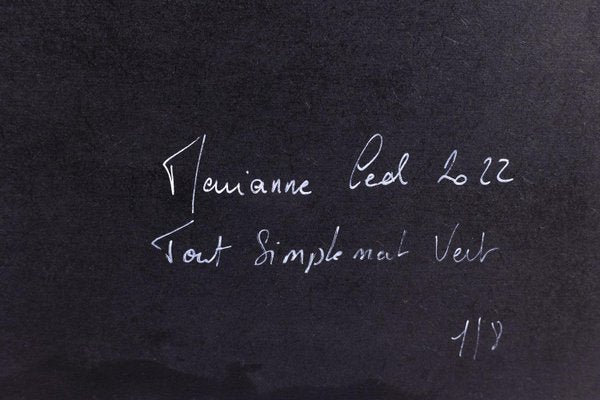 Marianne Ceol 2022
Tout Simplement Vert
1/8